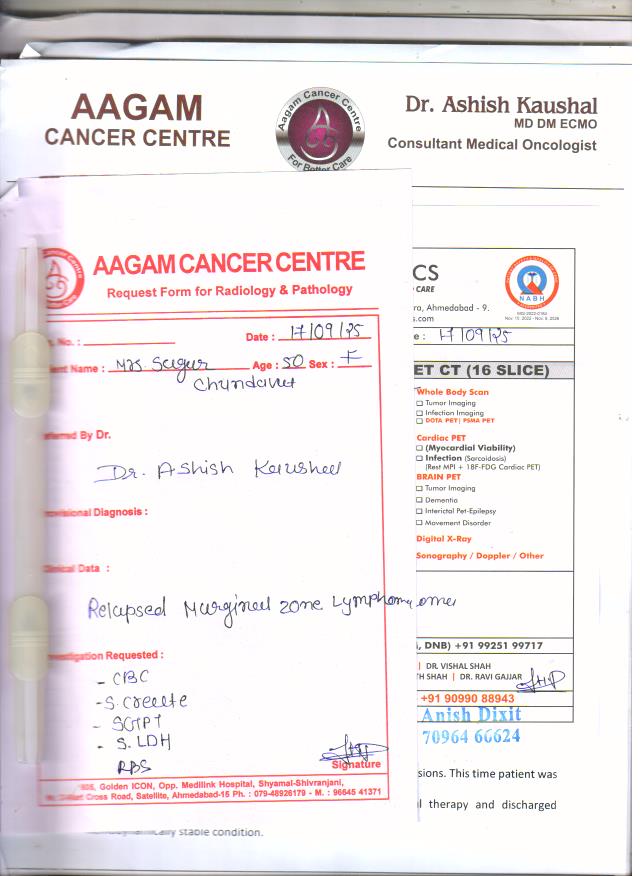 AAGAM
CANCER CENTRE
Aagam Cancer Centre
For Better Care
Dr. Ashish Kaushal
MD DM ECMO
Consultant Medical Oncologist
AAGAM CANCER CENTRE
Request Form for Radiology & Pathology
No. :
Date : 17/09/25
Name : Mrs. Sagar Age : 50 Sex : F
Chundavat
By Dr.
Dr. Ashish Kaushal
Diagnosis :
Data :
Relapsed Marginal zone Lymphoma
Requested :
- CBC
- S. Create
- SGPT
- S. LDH
RBS
Signature
Golden ICON, Opp. Medilink Hospital, Shyamal-Shivranjani,
Cross Road, Satellite, Ahmedabad-15 Ph. : 079-48926179 - M. : 96645 41371
CS
CARE
NABH
ra, Ahmedabad - 9.
s.com
e : 17/09/25
ET CT (16 SLICE)
Whole Body Scan
Tumor Imaging
Infection Imaging
DOTA PET| PSMA PET
Cardiac PET
(Myocardial Viability)
Infection (Sarcoidosis)
(Rest MPI + 18F-FDG Cardiac PET)
BRAIN PET
Tumor Imaging
Dementia
Interictal Pet-Epilepsy
Movement Disorder
Digital X-Ray
Sonography / Doppler / Other
, DNB) +91 99251 99717
| DR. VISHAL SHAH
TH SHAH | DR. RAVI GAJJAR
+91 90990 88943
Anish Dixit
70964 66624
sions. This time patient was
l therapy and discharged
stable condition.